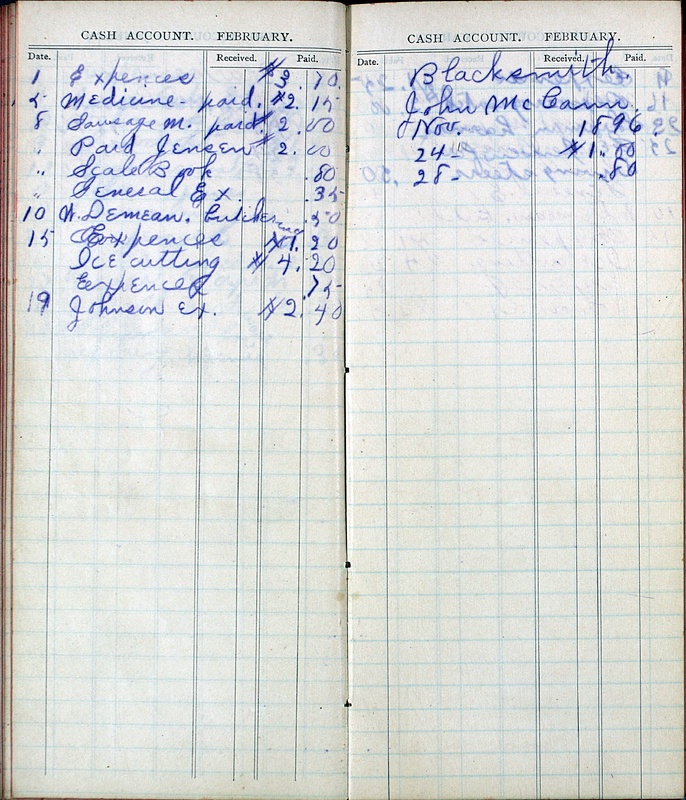 CASH ACCOUNT. FEBRUARY.
Date. Received. Paid.
1 Expences $3.70
5 Medicine- paid. $2.15
8 Sausage m. paid $2.00
" Paid Jensen $2.00
" Scale Book .80
" General Ex. .35
10 W. Demean. Butcher .50
15 Exxpences $1.20
Ice cutting $4.20
Eexpences .75
19 Johnson Ex. $2.40
CASH ACCOUNT. FEBRUARY.
Date. Received. Paid.
Blacksmith.
John McCann.
Nov. 1896.
24- $1.00
28- .80